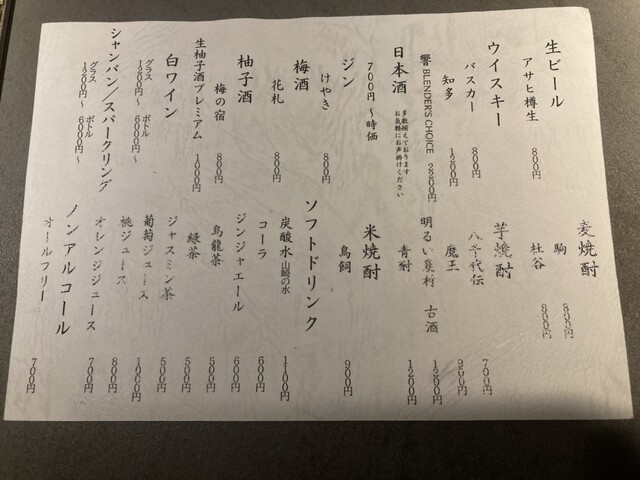 生ビール
アサヒ樽生 800円
ウイスキー
バスカー 800円
知多 1200円
響 BLENDER'S CHOICE 2200円
日本酒
700円～時価
多数揃えております
お気軽にお声掛けください
ジン
けやき 800円
梅酒
花札 800円
柚子酒
梅の宿 800円
生柚子酒プレミアム 1000円
白ワイン
グラス ボトル
1200円～ 6000円～
シャンパン／スパークリング
グラス ボトル
1200円～ 6000円～
麦焼酎
駒 800円
杜谷 900円
芋焼酎
八千代伝 700円
魔王 900円
明るい農村 古酒 1200円
青酎 1200円
米焼酎
鳥飼 900円
ソフトドリンク
炭酸水 山崎の水 1100円
コーラ 600円
ジンジャエール 600円
烏龍茶 500円
緑茶 500円
ジャスミン茶 500円
葡萄ジュース 1000円
桃ジュース 800円
オレンジジュース 700円
ノンアルコール
オールフリー 700円